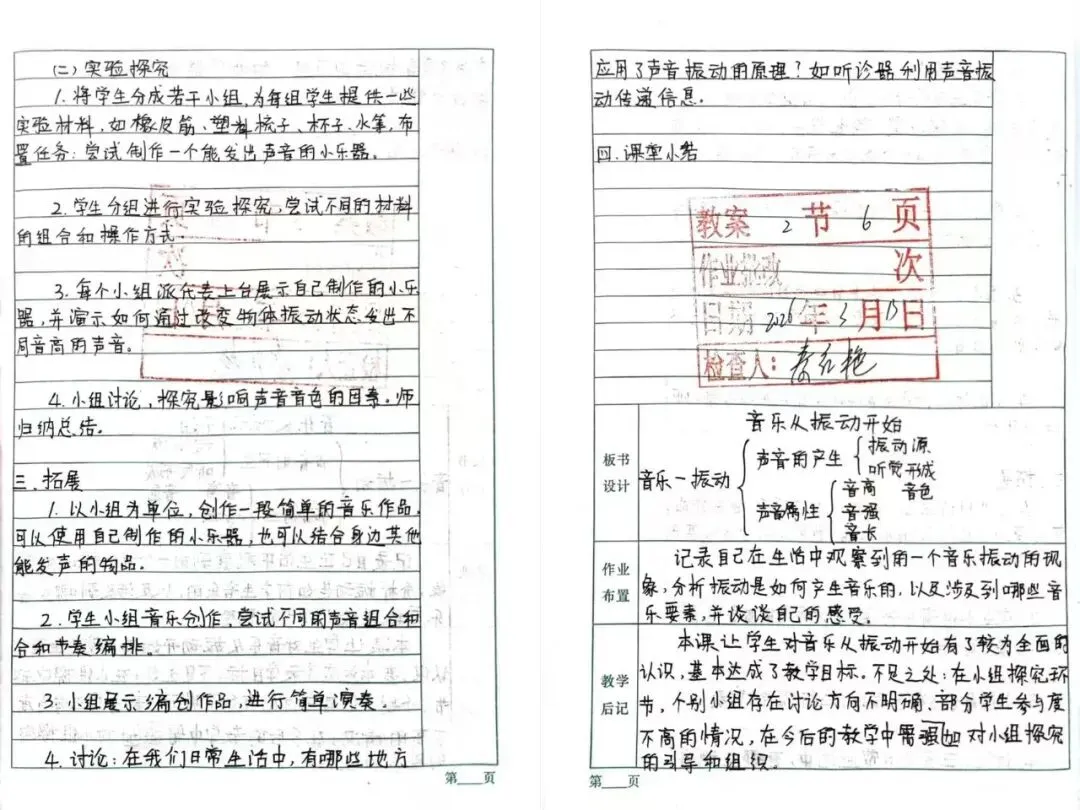 (二) 实验探究
1. 将学生分成若干小组,为每组学生提供一些
实验材料,如橡皮筋、塑料梳子、杯子、水等,布
置任务:尝试制作一个能发出声音的小乐器。
2. 学生分组进行实验探究,尝试不同的材料
的组合和操作方式.
3. 每个小组派代表上台展示自己制作的小乐
器,并演示如何通过改变物体振动状态发出不
同音高的声音。
4. 小组讨论,探究影响声音音色的因素。师
归纳总结。
三. 拓展
1. 以小组为单位,创作一段简单的音乐作品,
可以使用自己制作的小乐器,也可以结合身边其他
能发声的物品。
2. 学生小组音乐创作,尝试不同的声音组合和
合和节奏编排。
3. 小组展示编创作品,进行简单演奏。
4. 讨论:在我们日常生活中,有哪些地方
第 页
应用了声音振动的原理?如听诊器利用声音振
动传递信息。
四. 课堂小结
教案 2 节 6 页
作业批改 次
日期 2026年3月 日
检查人:
板书设计
音乐从振动开始
音乐—振动
声音的产生
振动源
听觉形成
声音属性
音高 音色
音强
音长
作业布置
记录自己在生活中观察到的一个音乐振动的现
象,分析振动是如何产生音乐的,以及涉及到哪些音
乐要素,并谈谈自己的感受。
教学后记
本课让学生对音乐从振动开始有了较为全面的
认识,基本达成了教学目标。不足之处:在小组探究环
节,个别小组存在讨论方向不明确、部分学生参与度
不高的情况,在今后的教学中需强如对小组探究
的引导和组织。
第 页